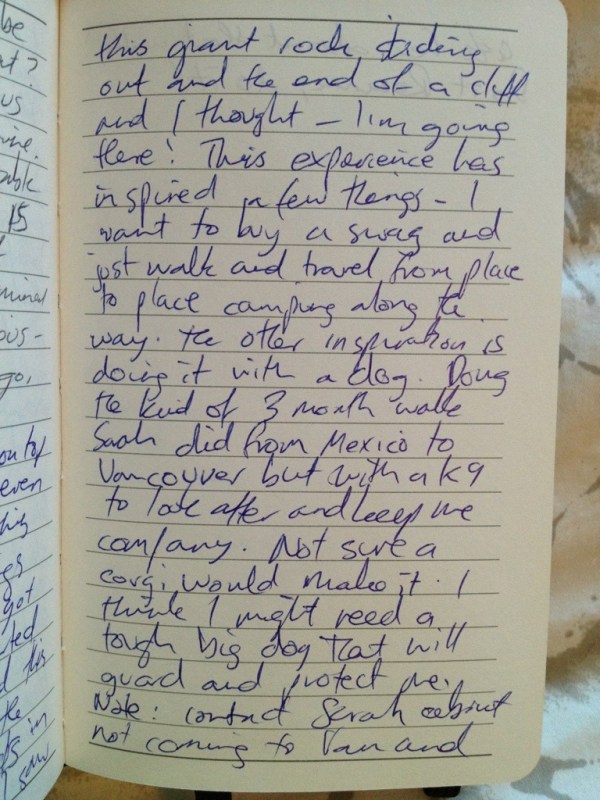 be
this giant rock
out and the end of a cliff
and I thought - I'm going
there! This experience has
inspired a few things - I
want to buy a swag and
just walk and travel from place
to place camping along the
way. The other inspiration is
doing it with a dog. Doing
the kind of 3 month walk
Sarah did from Mexico to
Vancouver but with a K9
to look after and keep me
company. Not sure a
corgi would make it. I
think I might need a
tough big dog that will
guard and protect me.
Note: contact Sarah about
not coming to Van and